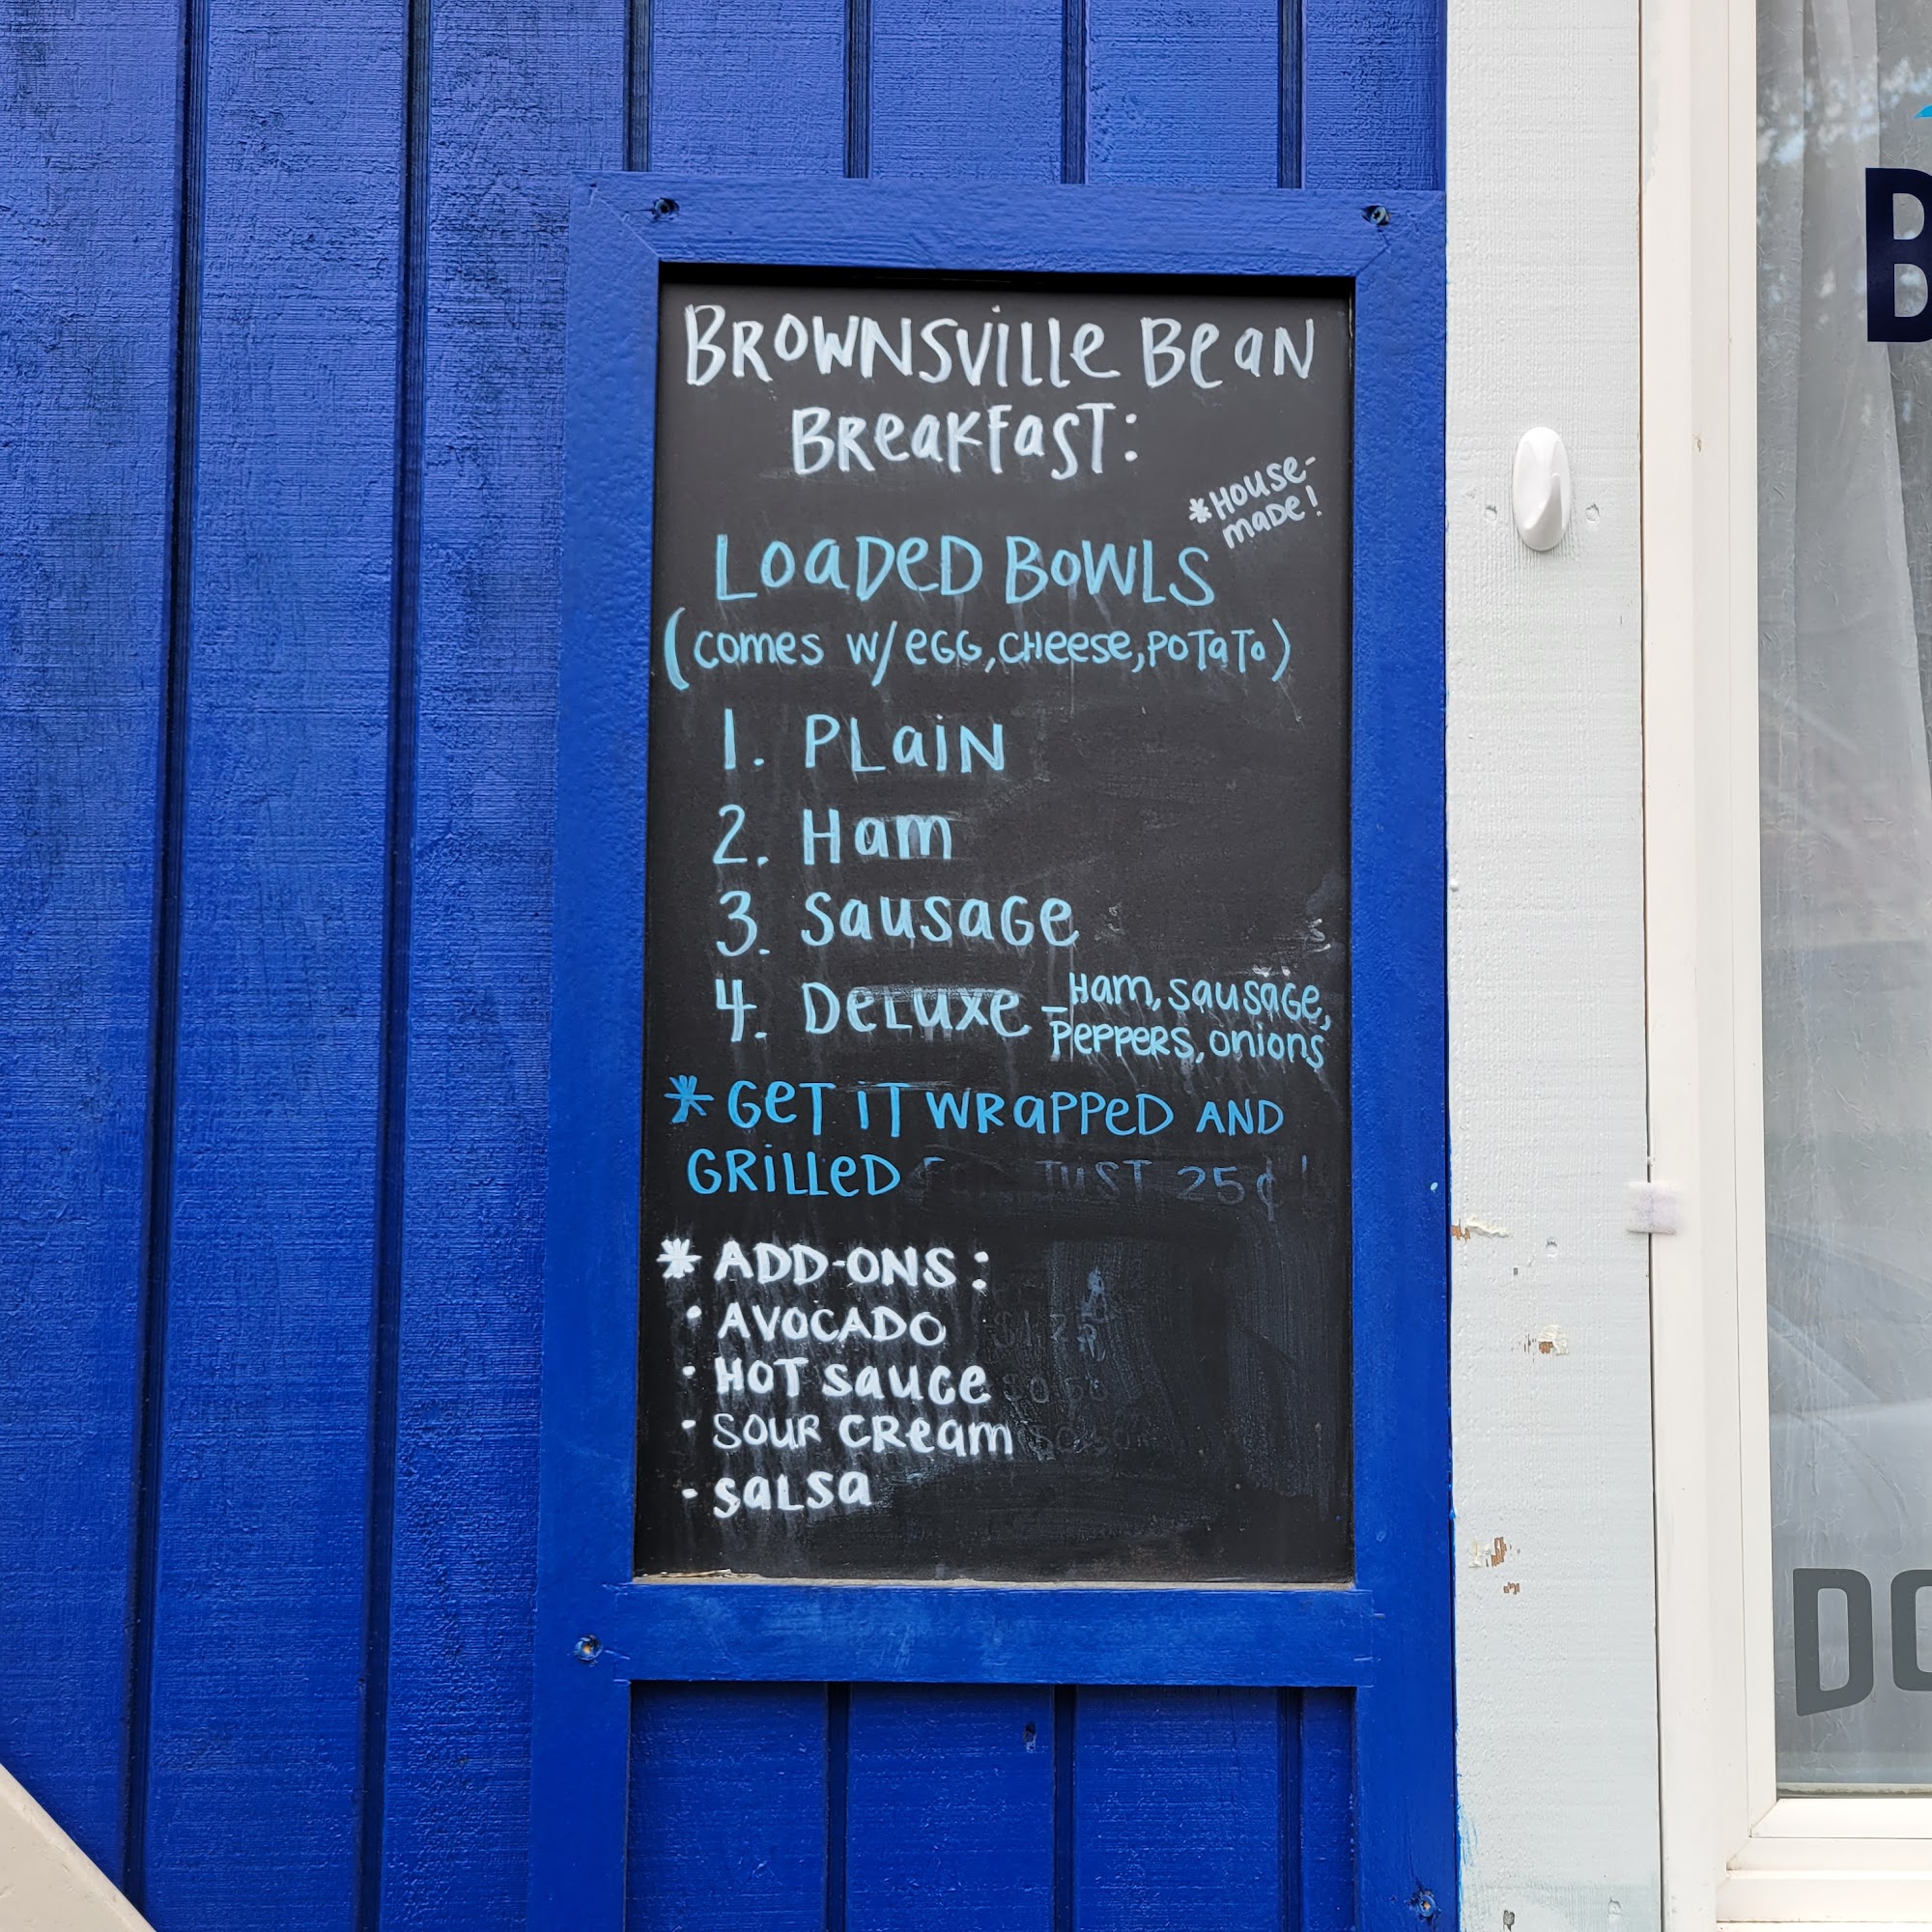 BROWNSVILLE BEAN
BREAKFAST:
*HOUSE-
MADE!
LOADED BOWLS
(COMES W/EGG, CHEESE, POTATO)
1. PLAIN
2. HAM
3. SAUSAGE
4. DELUXE - HAM, SAUSAGE,
PEPPERS, ONIONS
* GET IT WRAPPED AND
GRILLED JUST 25¢!
* ADD-ONS:
• AVOCADO
• HOT SAUCE
• SOUR CREAM
• SALSA
B
DO